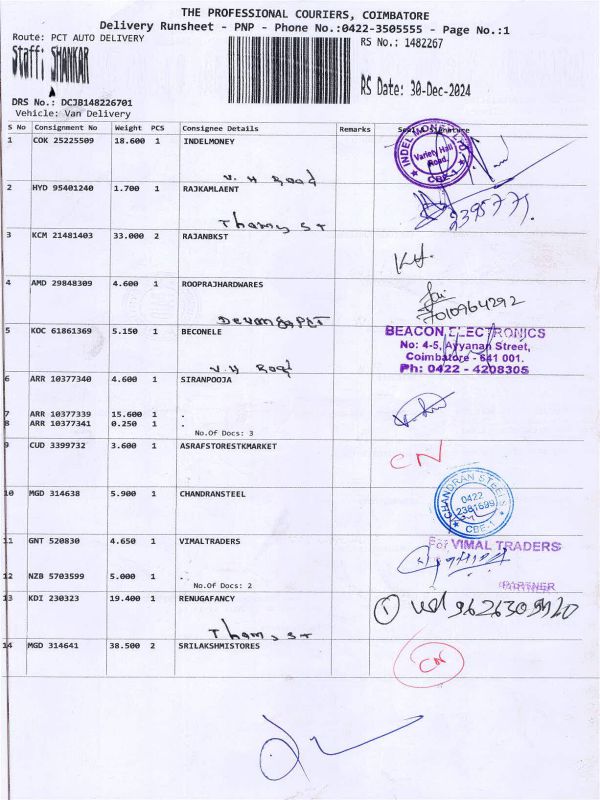 THE PROFESSIONAL COURIERS, COIMBATORE
Delivery Runsheet - PNP - Phone No.:0422-3505555 - Page No.:1
Route: PCT AUTO DELIVERY
RS No.: 1482267
Staff: SHANKAR
RS Date: 30-Dec-2024
DRS No.: DCJB148226701
Vehicle: Van Delivery
S No Consignment No Weight PCS Consignee Details Remarks Seal Signature
1 COK 25225509 18.600 1 INDELMONEY
Variety Hall Road.
CBE-1
V. H Road
2 HYD 95401240 1.700 1 RAJKAMLAENT
Thomas ST
3 KCM 21481403 33.000 2 RAJANBKST
4 AMD 29848309 4.600 1 ROOPRAJHARDWARES
7010964292
Devangapet
5 KOC 61861369 5.150 1 BECONELE
BEACON ELECTRONICS
No: 4-5, Ayyanan Street,
Coimbatore - 641 001.
Ph: 0422 - 4208305
V. H Road
6 ARR 10377340 4.600 1 SIRANPOOJA
7 ARR 10377339 15.600 1 .
8 ARR 10377341 0.250 1 .
No.Of Docs: 3
9 CUD 3399732 3.600 1 ASRAFSTORESTKMARKET
CN
10 MGD 314638 5.900 1 CHANDRANSTEEL
CHANDRAN STEELS
0422
2381699
CBE-1
11 GNT 520830 4.650 1 VIMALTRADERS
For VIMAL TRADERS
12 NZB 5703599 5.000 1 .
No.Of Docs: 2
PARTNER
13 KDI 230323 19.400 1 RENUGAFANCY
Thomas ST
14 MGD 314641 38.500 2 SRILAKSHMISTORES
CN